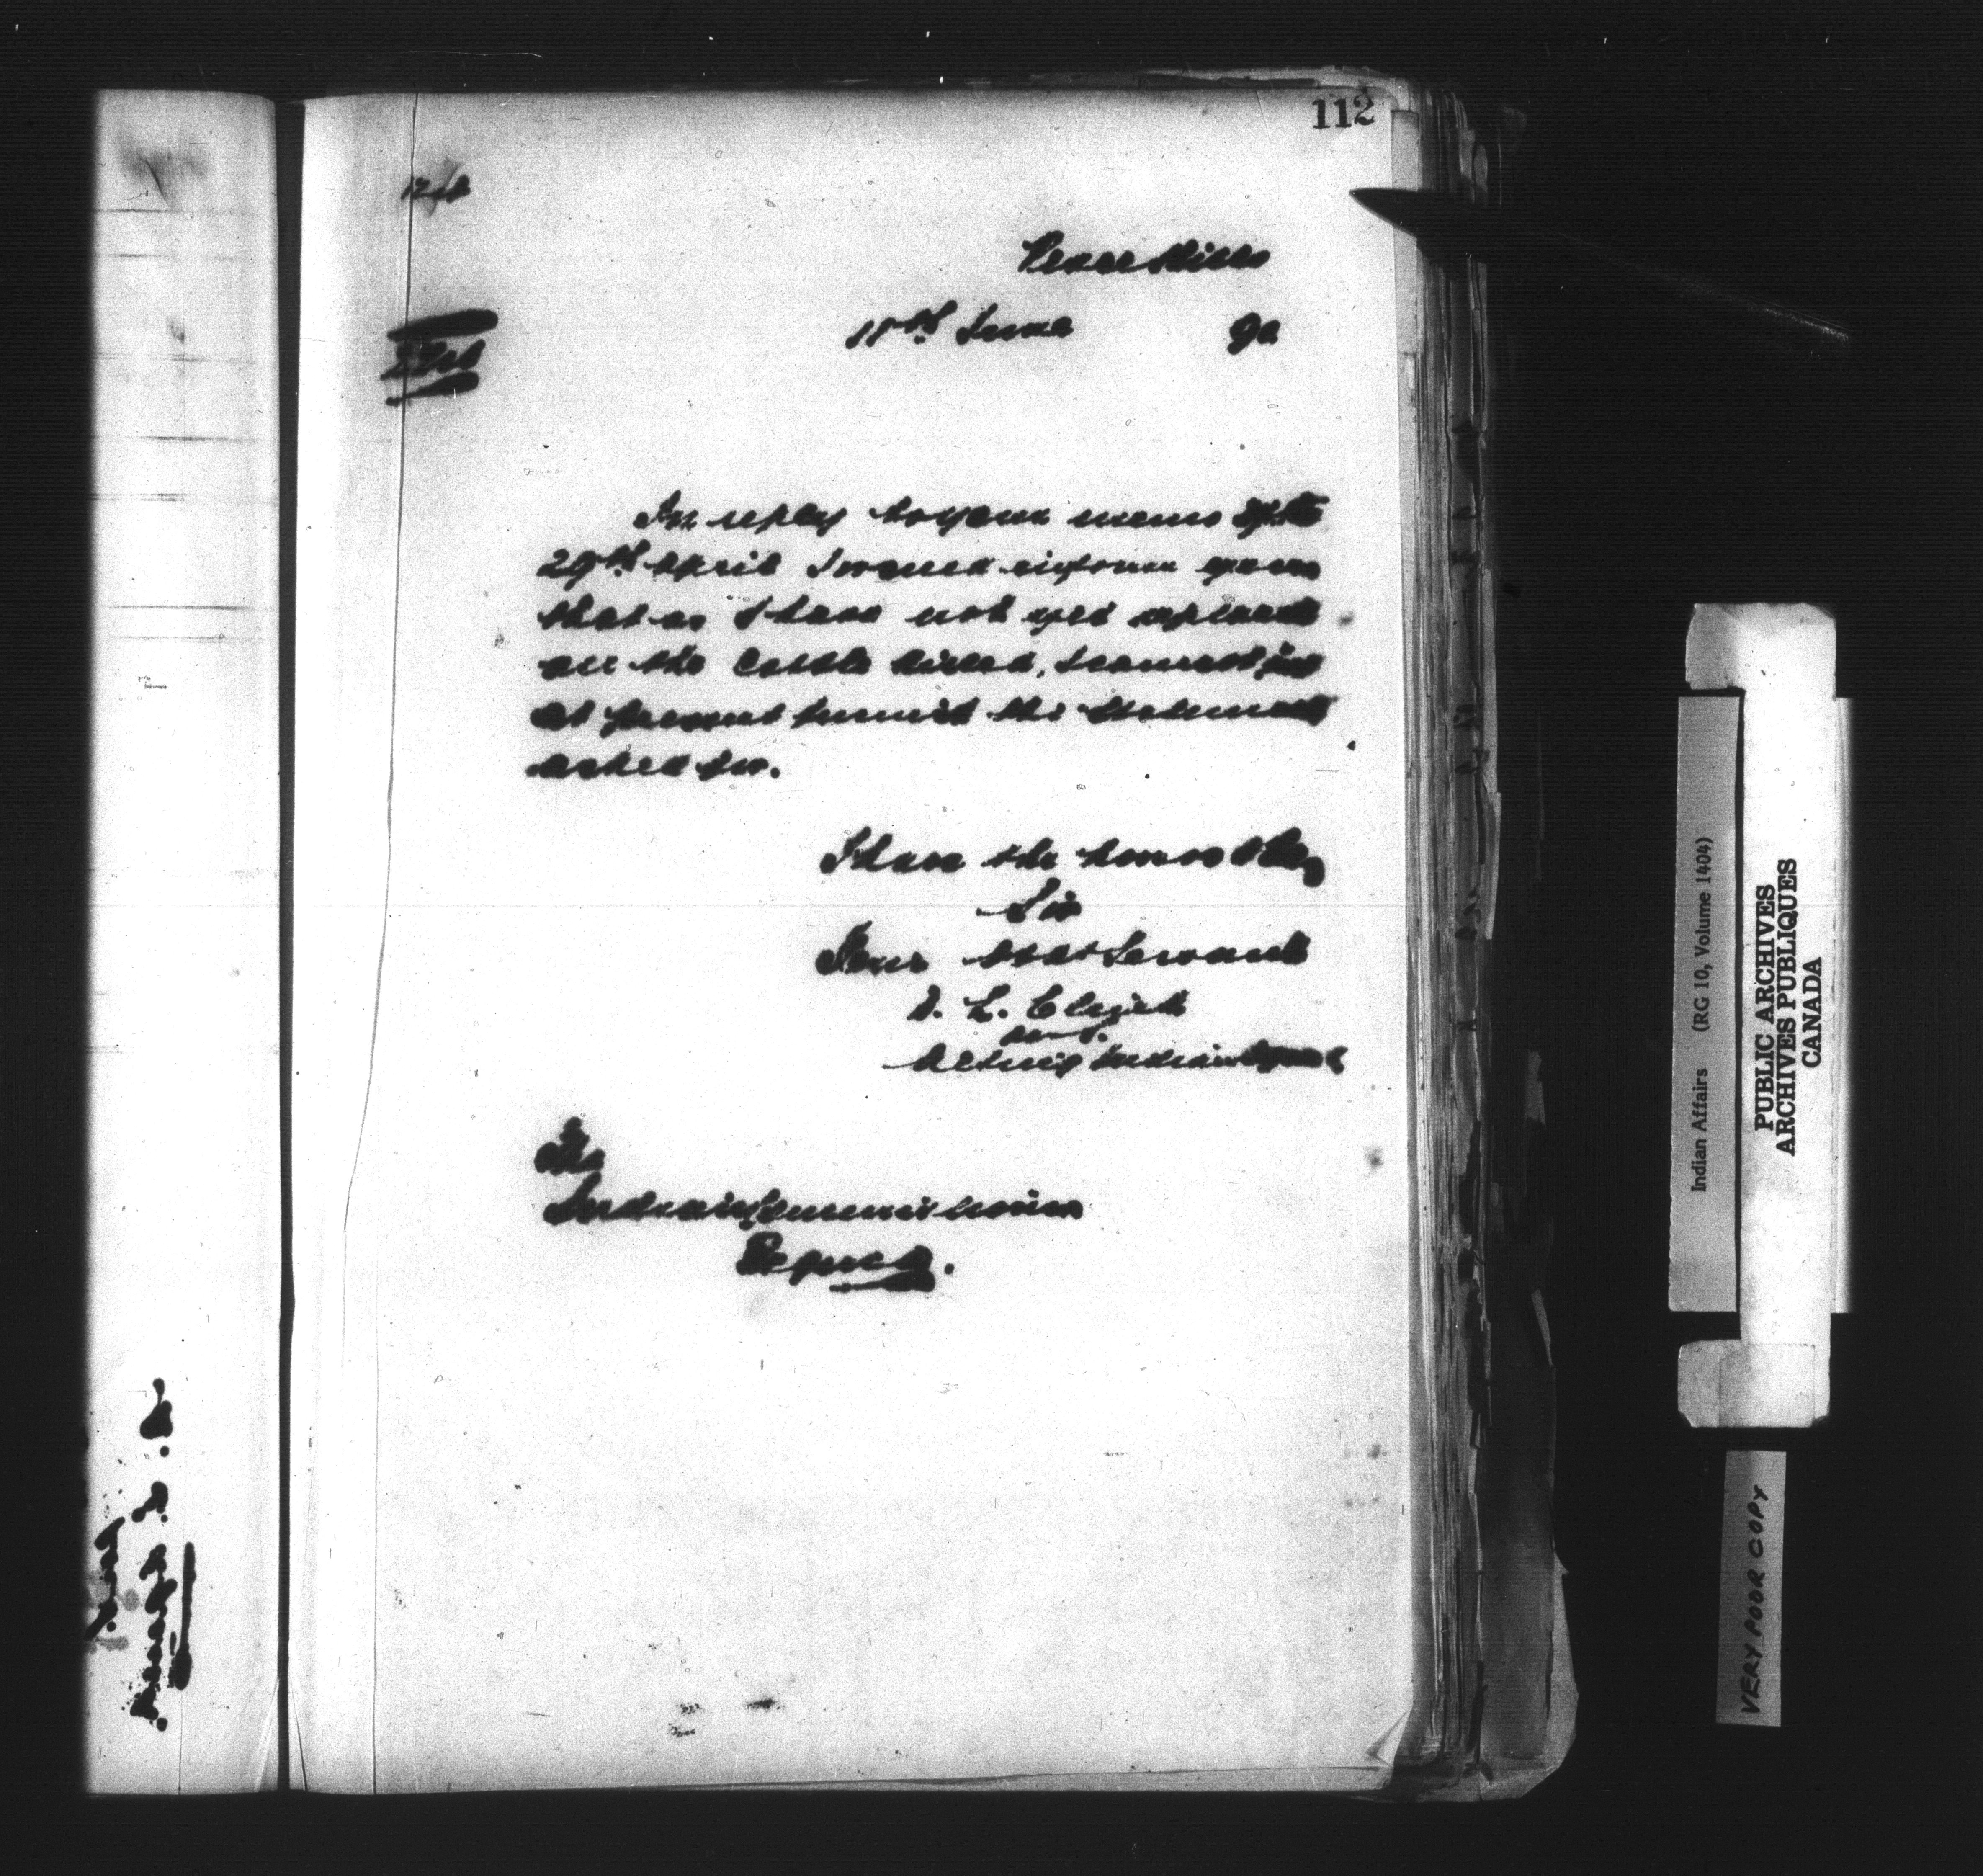 112
Peace Hills
18th June 90
In reply to your memo of the
29th April I would inform you
that as I have not yet replaced
all the Cattle killed, I cannot just
at present furnish the statement
asked for.
I have the honor to be,
Sir
Your Obdt Servant
D. L. Clink
Acting Indian Agent
The
Indian Commissioner
Regina.
Indian Affairs (RG 10, Volume 1404)
PUBLIC ARCHIVES
ARCHIVES PUBLIQUES
CANADA
VERY POOR COPY